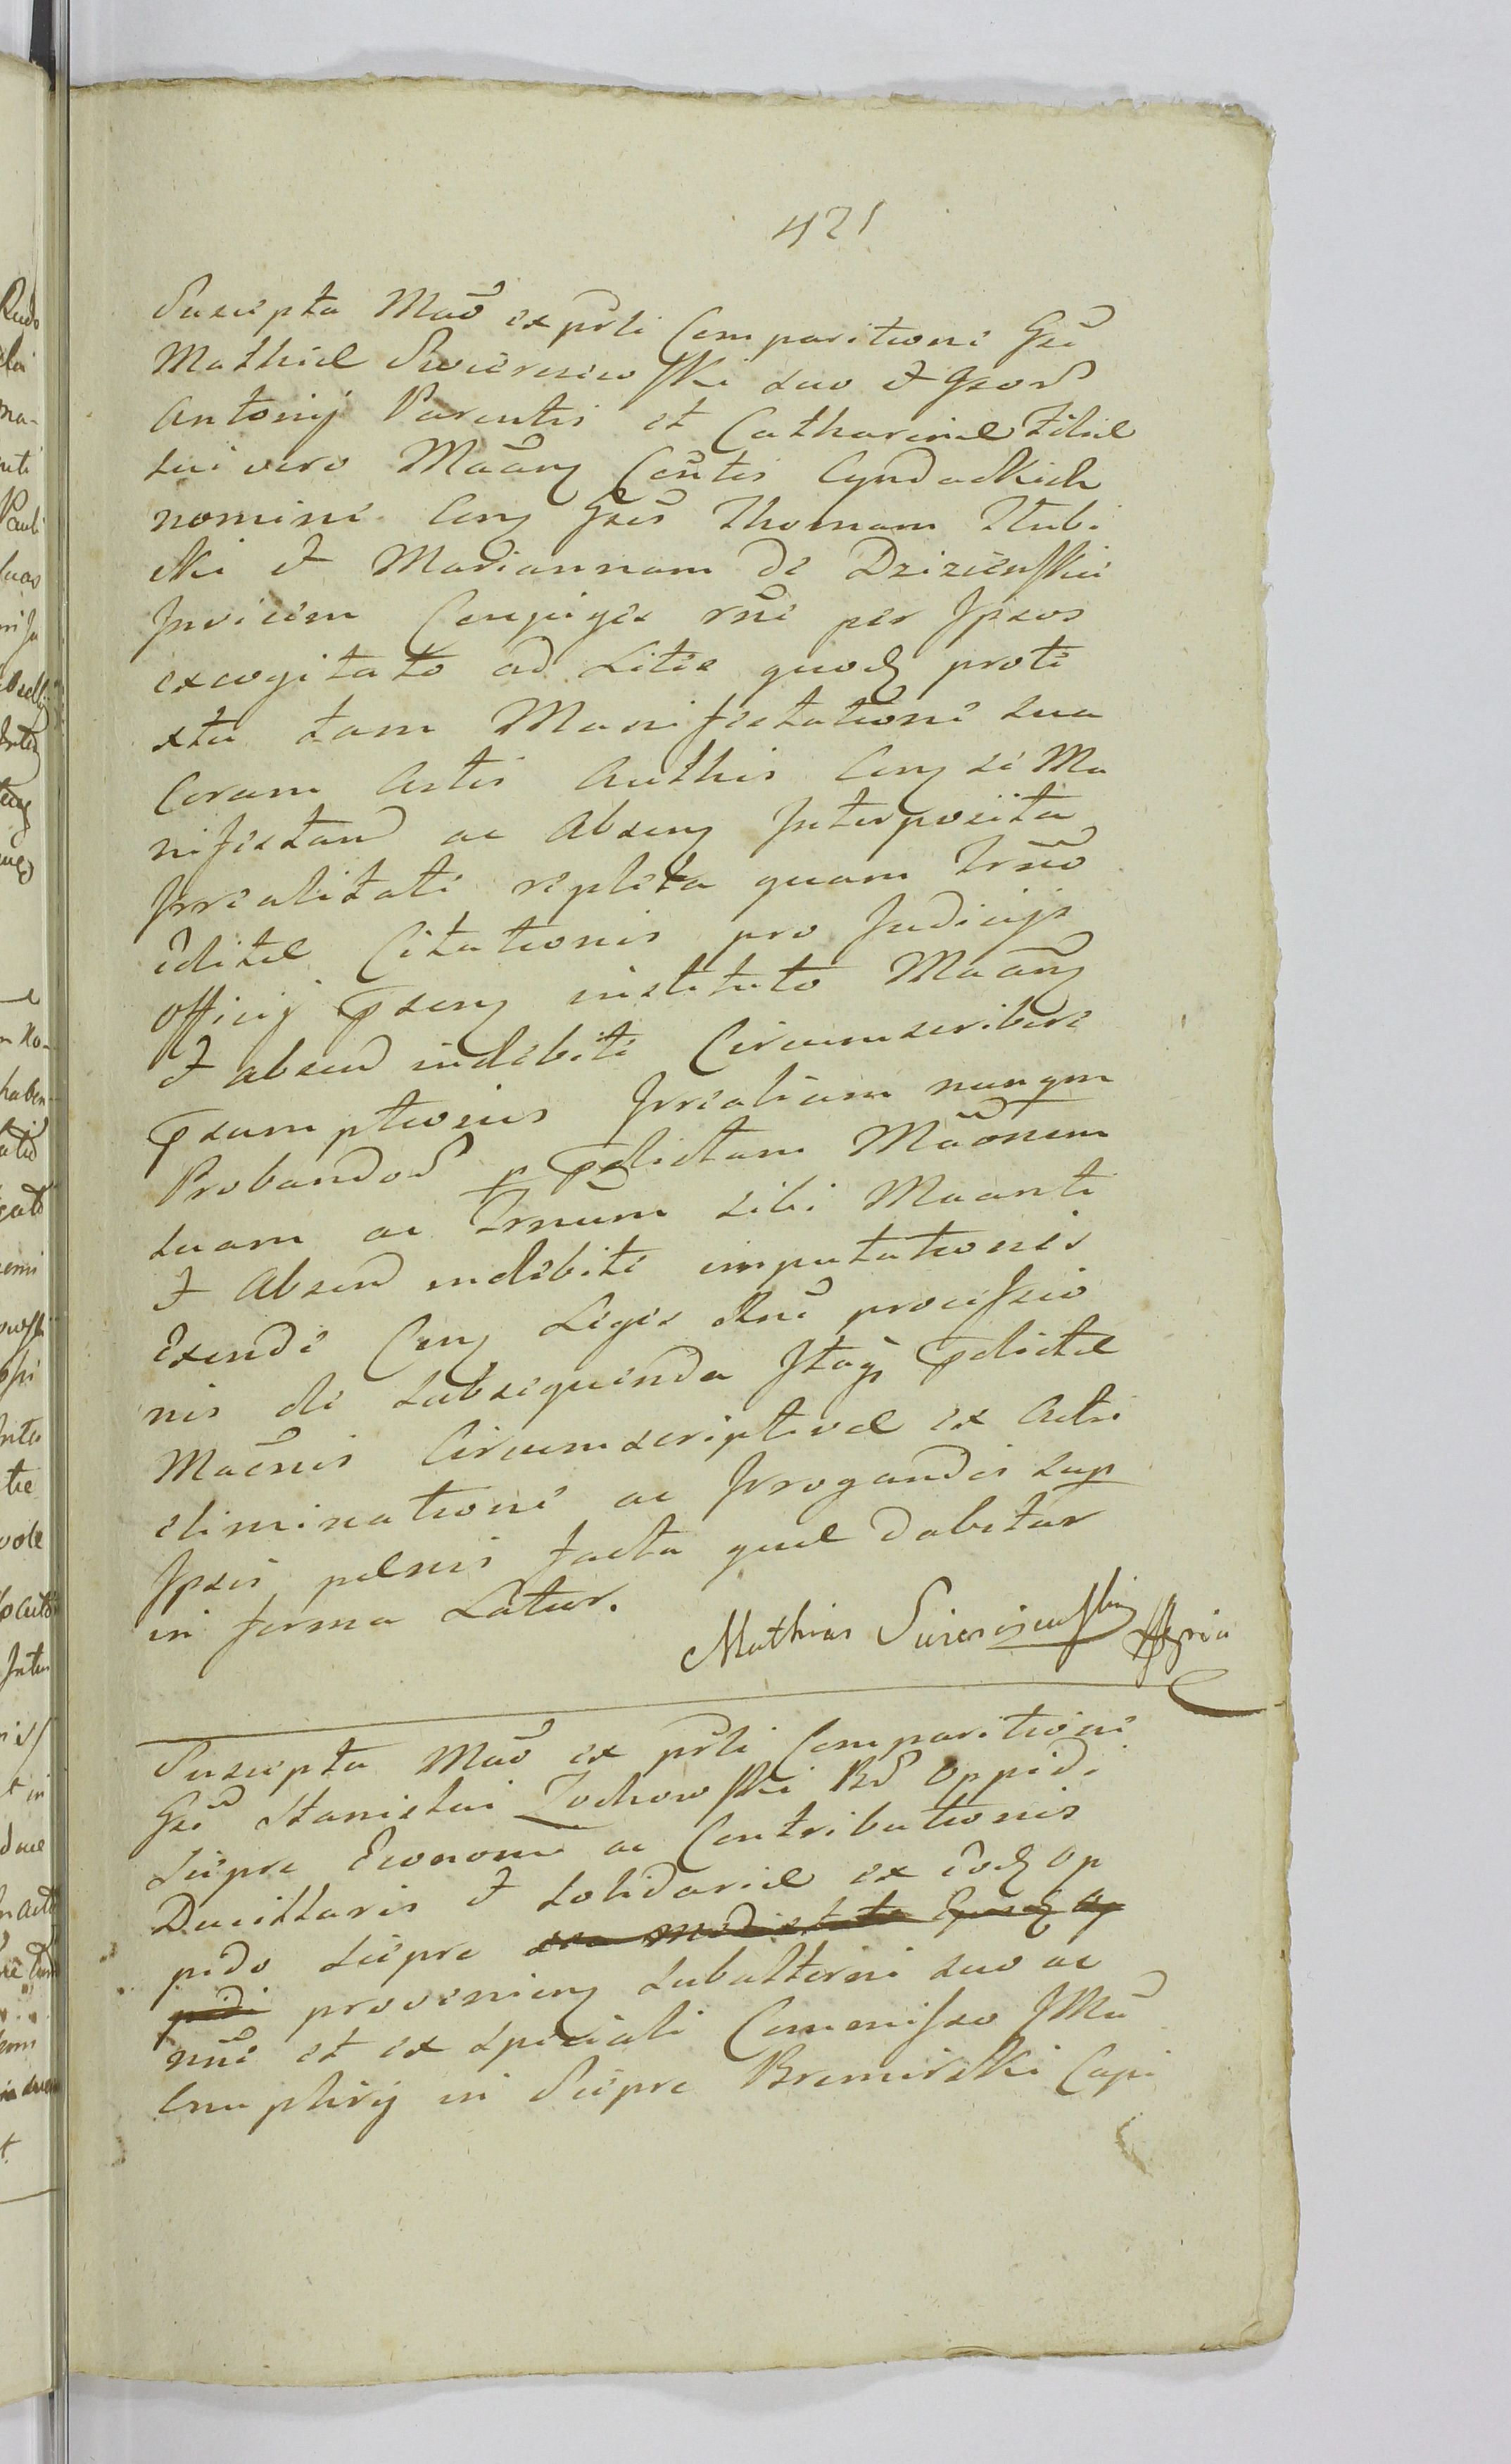 421
Suscepta Mãõ ex pñti Comparitione Gsi
Mathiæ Swierczewski suo et Gsoȓ
Antonij Parentis et Catharinæ Filiæ
sui vero Mãan Contis Cyndackich
nomine Con Gses Thomam Stubi
cki et Mariannam de Dzizienskie
Invicem Conjuges rñe per Ipsos
excogitato ad Lites quoq prote
xtu tam Manifestatione sua
Coram Actis Authis Con se Ma
nifestan ac Absen Interposita
Irrealitate repleta quam Trño
editæ Citationis pro Judicijs
Officij psen instituto Mãan
et absen indebite Circumscribere
psumptionis Irrealium nunqm
Probandoȓ p pdictam Mãõnem
suam ac Trnum sibi Maanti
et Absen indebite imputationis
Exinde Con Leges Rni processio
nis de subsequenda Itaq pdictæ
Maõnis Circumscriptione ex Actis
eliminatione ac Irrogandis sup
Ipsis pænis facta quæ dabitur
in forma Latiori.
Mathias Swierczewski
Suscepta Mãõ ex pñti Comparitione
Gsi Stanislai Zochowski Bȓ Oppidi
Sieprc Econom ac Contributionis
Ducillaris et Solidariæ ex eodq Op
pido Sieprc sea medietate Ejusq Op
pidi provenien Subalterni suo ac
nñe et ex speciali Commisso JMci
Onuphrij in Sieprc Bromirski Capi